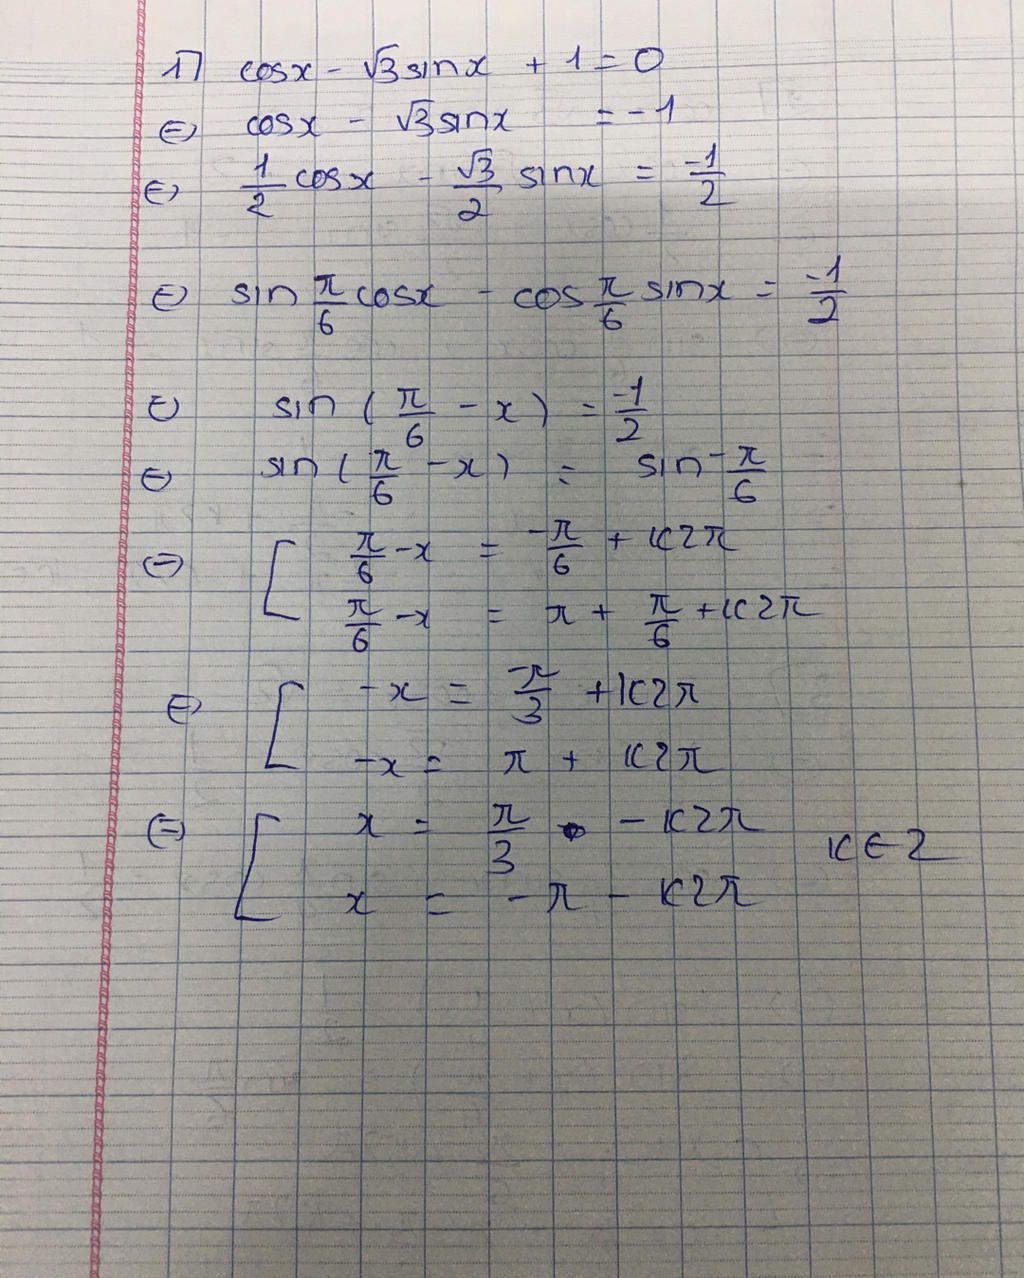 1) cosx - √3 sinx + 1 = 0
⇔ cosx - √3 sinx = -1
⇔ 1/2 cosx - √3/2 sinx = -1/2
⇔ sin π/6 cosx - cos π/6 sinx = -1/2
⇔ sin ( π/6 - x ) = -1/2
⇔ sin ( π/6 - x ) = sin -π/6
⇔ [ π/6 - x = -π/6 + k2π
π/6 - x = π + π/6 + k2π
⇔ [ -x = -π/3 + k2π
-x = π + k2π
⇔ [ x = π/3 - k2π
x = -π - k2π
k ∈ Z